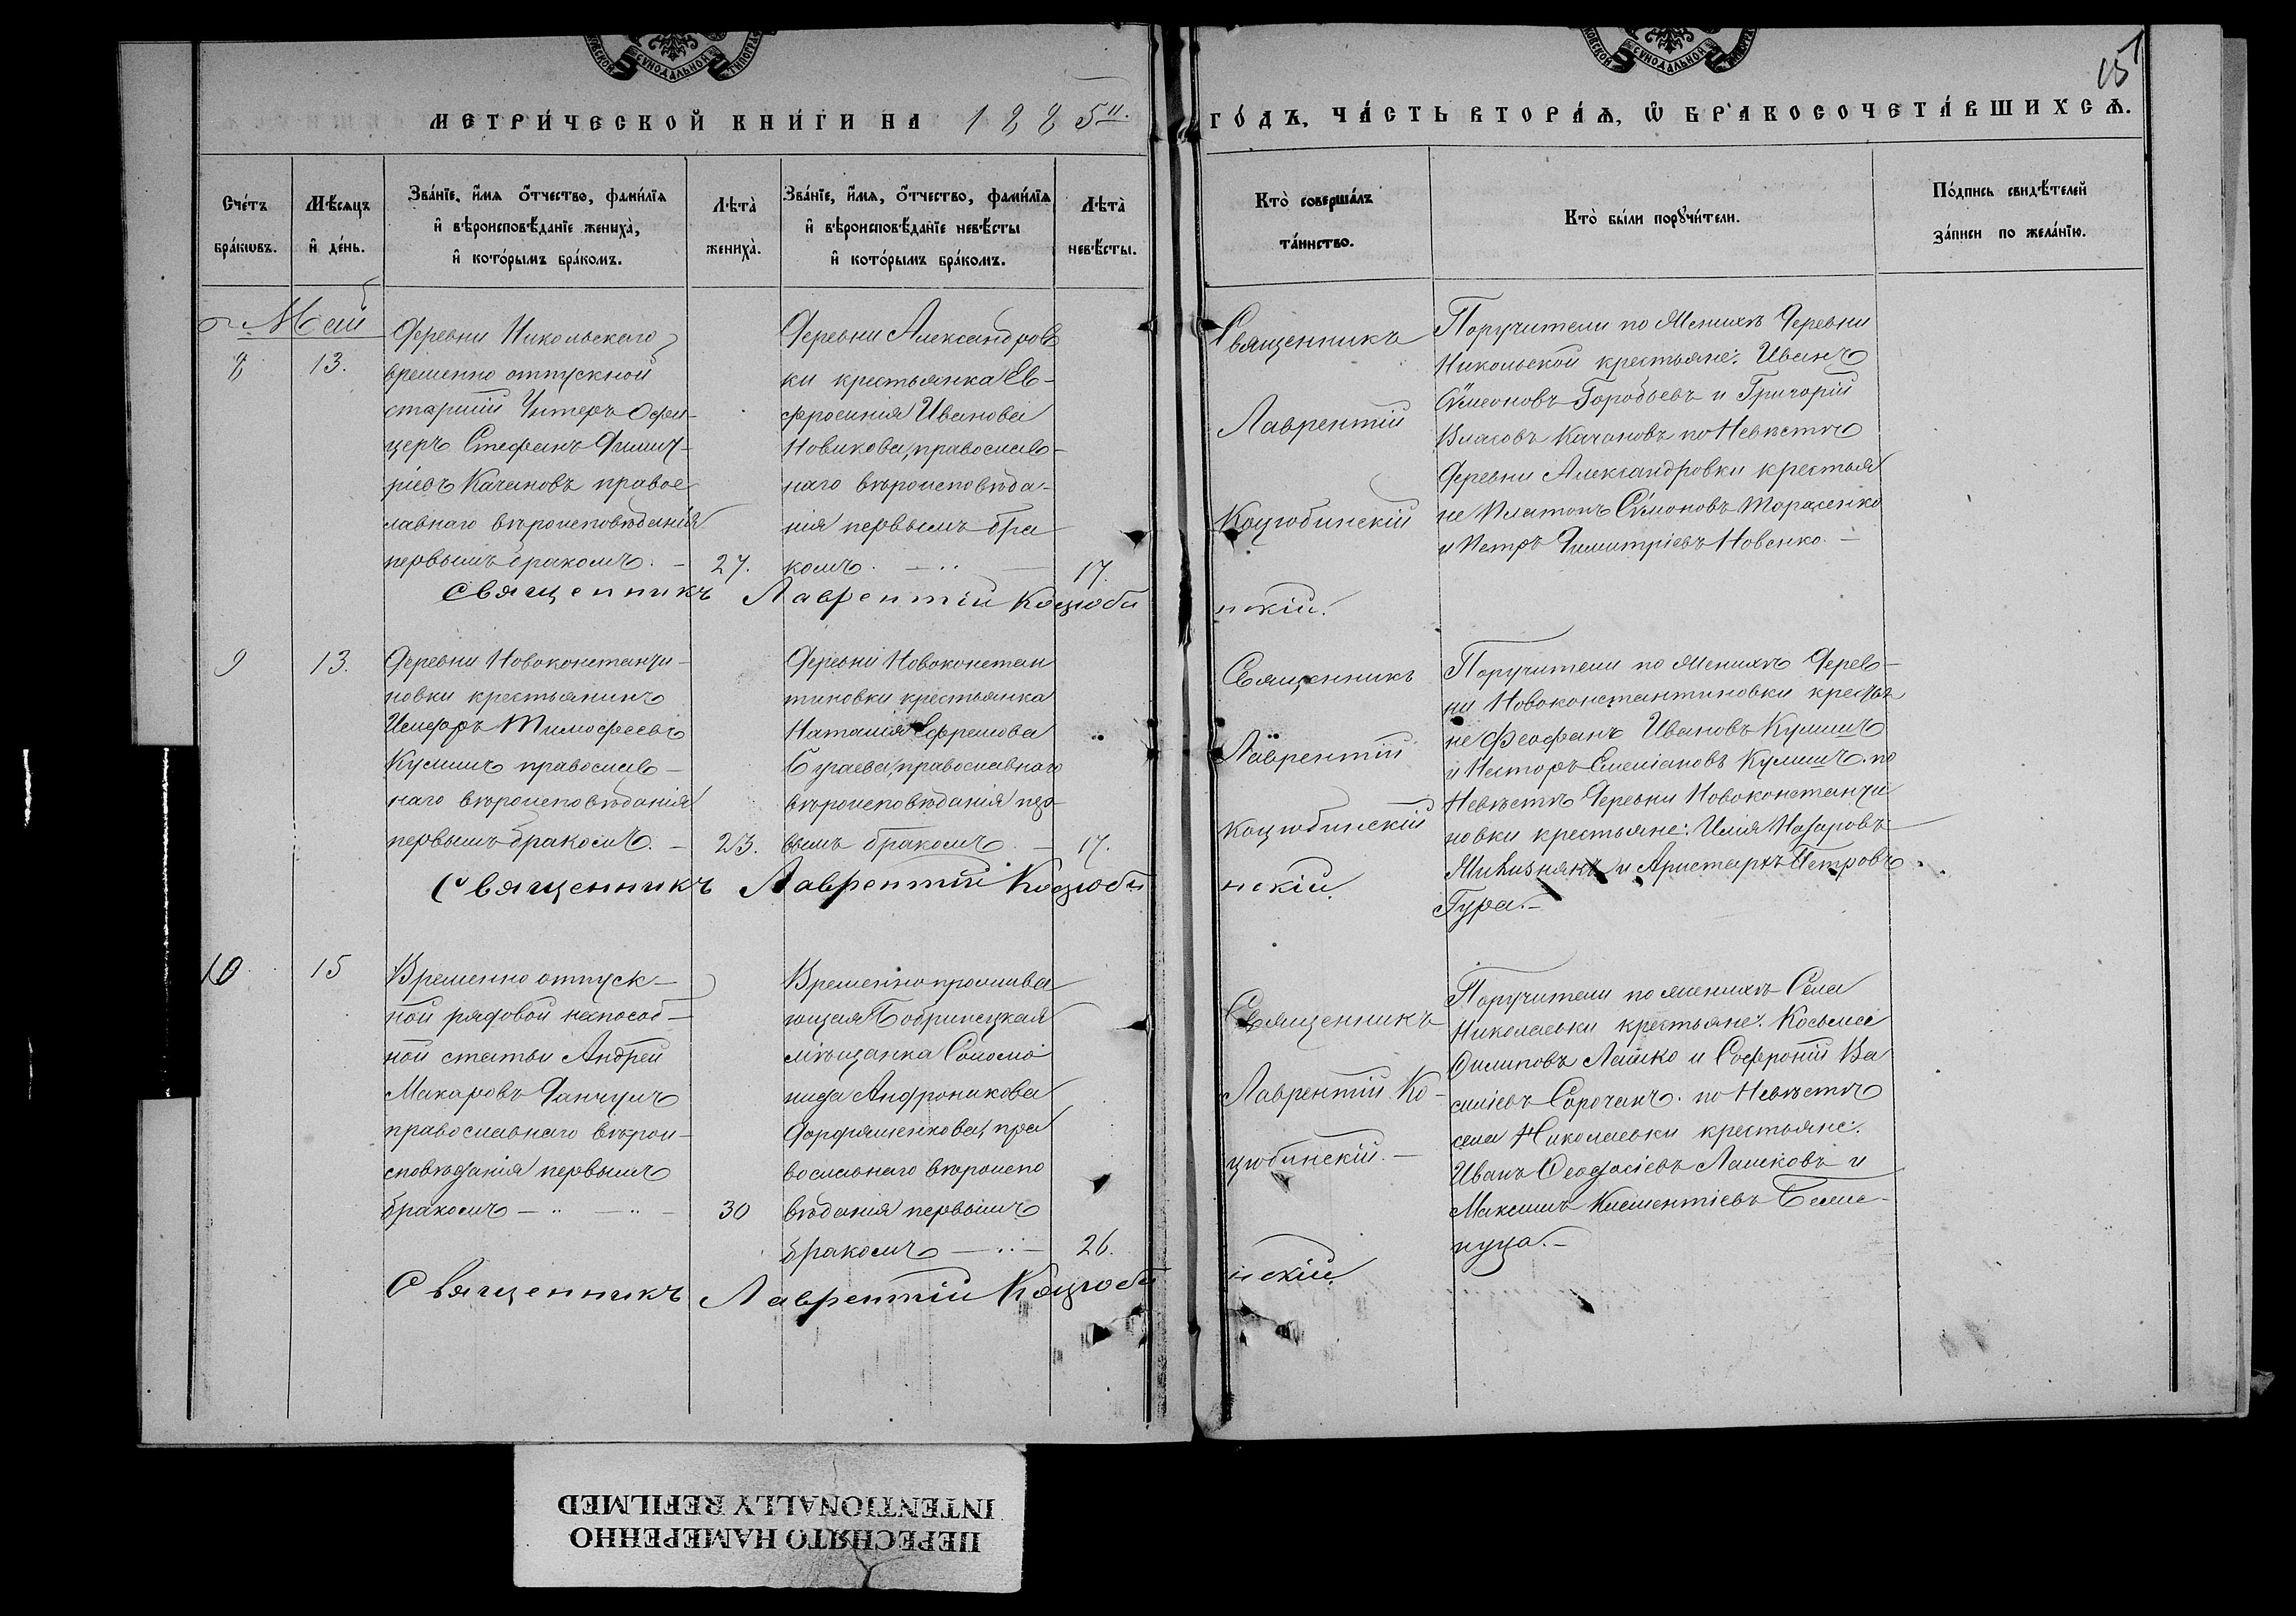 МЕТРИ́ЧЕСКОЙ КНИ́ГИ НА 1885й.
ГО́ДЪ, ЧА́СТЬ ВТОРА́Ѧ, Ѿ БРАКОСОЧЕТА́ВШИХСѦ.
15
Сче́тъ бра́кѡвъ.
Мѣ́сяцъ и҆ де́нь.
Зва́нїе, и҆́мя, ѻ҆́тчество, фами́лїя и҆ вѣроисповѣ́данїе жениха̀, и҆ кото́рымъ бра́комъ.
Лѣта̀ жениха̀.
Зва́нїе, и҆́мя, ѻ҆́тчество, фами́лїя и҆ вѣроисповѣ́данїе невѣ́сты и҆ кото́рымъ бра́комъ.
Лѣта̀ невѣ́сты.
Кто̀ соверша́лъ та́инство.
Кто̀ бы́ли порꙋчи́тели.
По́дпись свидѣ́телей за́писи по жела́нїю.
Май
8
13.
Деревни Никольскаго
временно отпускной
старшій Унтеръ Офи-
церъ Стефанъ Димит-
ріевъ Качановъ право
славнаго вѣроисповѣданія
первымъ бракомъ. –
27.
Деревни Александров
ки крестьянка Ев-
фросинія Иванова
Новикова, православ-
наго вѣроисповѣда-
нія первымъ бра
комъ. –
17.
Священникъ
Лаврентій
Коцюбинскій
Поручители по Женихѣ Деревни
Никольской крестьяне: Иванъ
Сѵмеоновъ Горобьевъ и Григорій
Власовъ Качановъ по Невѣстѣ
Деревни Александровки крестья
не Платонъ Сѵмоновъ Тарасенко
и Петръ Димитріевъ Новенко. –
Священникъ Лаврентій Коцюби
нскій.
9
13.
Деревни Новоконстанти-
новки крестьянинъ
Тимофеевъ
Кулишъ православ-
наго вѣроисповѣданія
первымъ бракомъ. –
23.
Деревни Новоконстан
тиновки крестьянка
Наталія Ефремова
православнаго
вѣроисповѣданія пер-
вымъ бракомъ –
17.
Священникъ
Лаврентій
Коцюбинскій
Поручители по Женихѣ Дерев-
ни Новоконстантиновки крестья
не Феофанъ Ивановъ Кулишъ
и Несторъ Емеліановъ Кулишъ. по
Невѣстѣ Деревни Новоконстанти
новки крестьяне: Илія Назаровъ
и Аристархъ Петровъ
Гура. –
Священникъ Лаврентій Коцюби
нскій.
10
15
Временно отпуск-
ной рядовой неспособ-
ной статьи Андрей
Макаровъ Ганчулъ
православнаго вѣрои-
сповѣданія первымъ
бракомъ –
30
Временно прожива
ющая Бобринецкая
мѣщанка Соломо
нида Андроникова
пра
вославнаго вѣроиспо
вѣданія первымъ
бракомъ –
26.
Священникъ
Лаврентій Ко-
цюбинскій. –
Поручители по женихѣ Села
Николаевки крестьяне: Косьма
Филиповъ Лашко и Софроній Ва
силіевъ Сорочанъ. по Невѣстѣ
села Николаевки крестьяне:
Иванъ Феодосіевъ Лашковъ и
Максимъ Климентіевъ Беши-
пуца. –
Священникъ Лаврентій Коцюби
нскій
ПЕРЕСНЯТО НАМЕРЕННО
INTENTIONALLY REFILMED